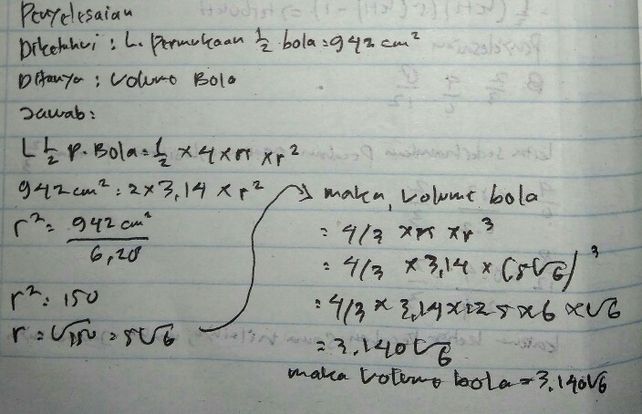 Penyelesaian
Diketahui : L. Permukaan 1/2 bola = 942 cm²
Ditanya : Volume Bola
Jawab:
L 1/2 P. Bola = 1/2 × 4 × π × r²
942 cm² = 2 × 3,14 × r²
r² = 942 cm² / 6,28
r² = 150
r = √150 = 5√6
maka, volume bola
= 4/3 × π × r³
= 4/3 × 3,14 × (5√6)³
= 4/3 × 3,14 × 125 × 6 × √6
= 3.140√6
maka volume bola = 3.140√6